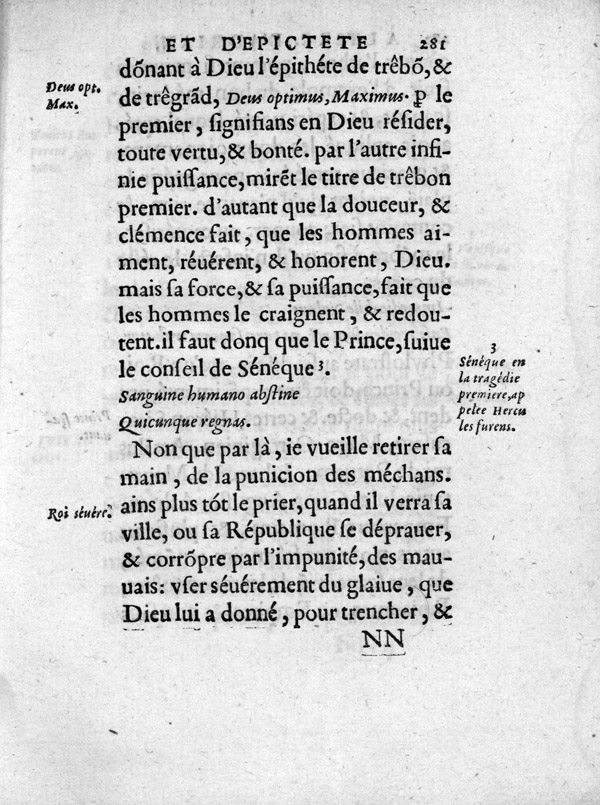 ET D'EPICTETE 281
Deus opt.
Max.
dõnant à Dieu l'épithéte de trêbõ, &
de trêgrãd, Deus optimus, Maximus. ꝑ le
premier, ſignifians en Dieu réſider,
toute vertu, & bonté. par l'autre infi-
nie puiſſance, mirẽt le titre de trêbon
premier. d'autant que la douceur, &
clémence fait, que les hommes ai-
ment, réuérent, & honorent, Dieu.
mais ſa force, & ſa puiſſance, fait que
les hommes le craignent, & redou-
tent. il faut donq que le Prince, ſuiue
le conſeil de Sénéque 3.
3
Sénéque en
la tragédie
premiere, ap
pelee Hercu
les furens.
Sanguine humano abſtine
Quicunque regnas.
Non que par là, ie vueille retirer ſa
main, de la punicion des méchans.
ains plus tót le prier, quand il verra ſa
Roi séuére.
ville, ou ſa République ſe déprauer,
& corrõpre par l'impunité, des mau-
uais: vſer séuérement du glaiue, que
Dieu lui a donné, pour trencher, &
NN